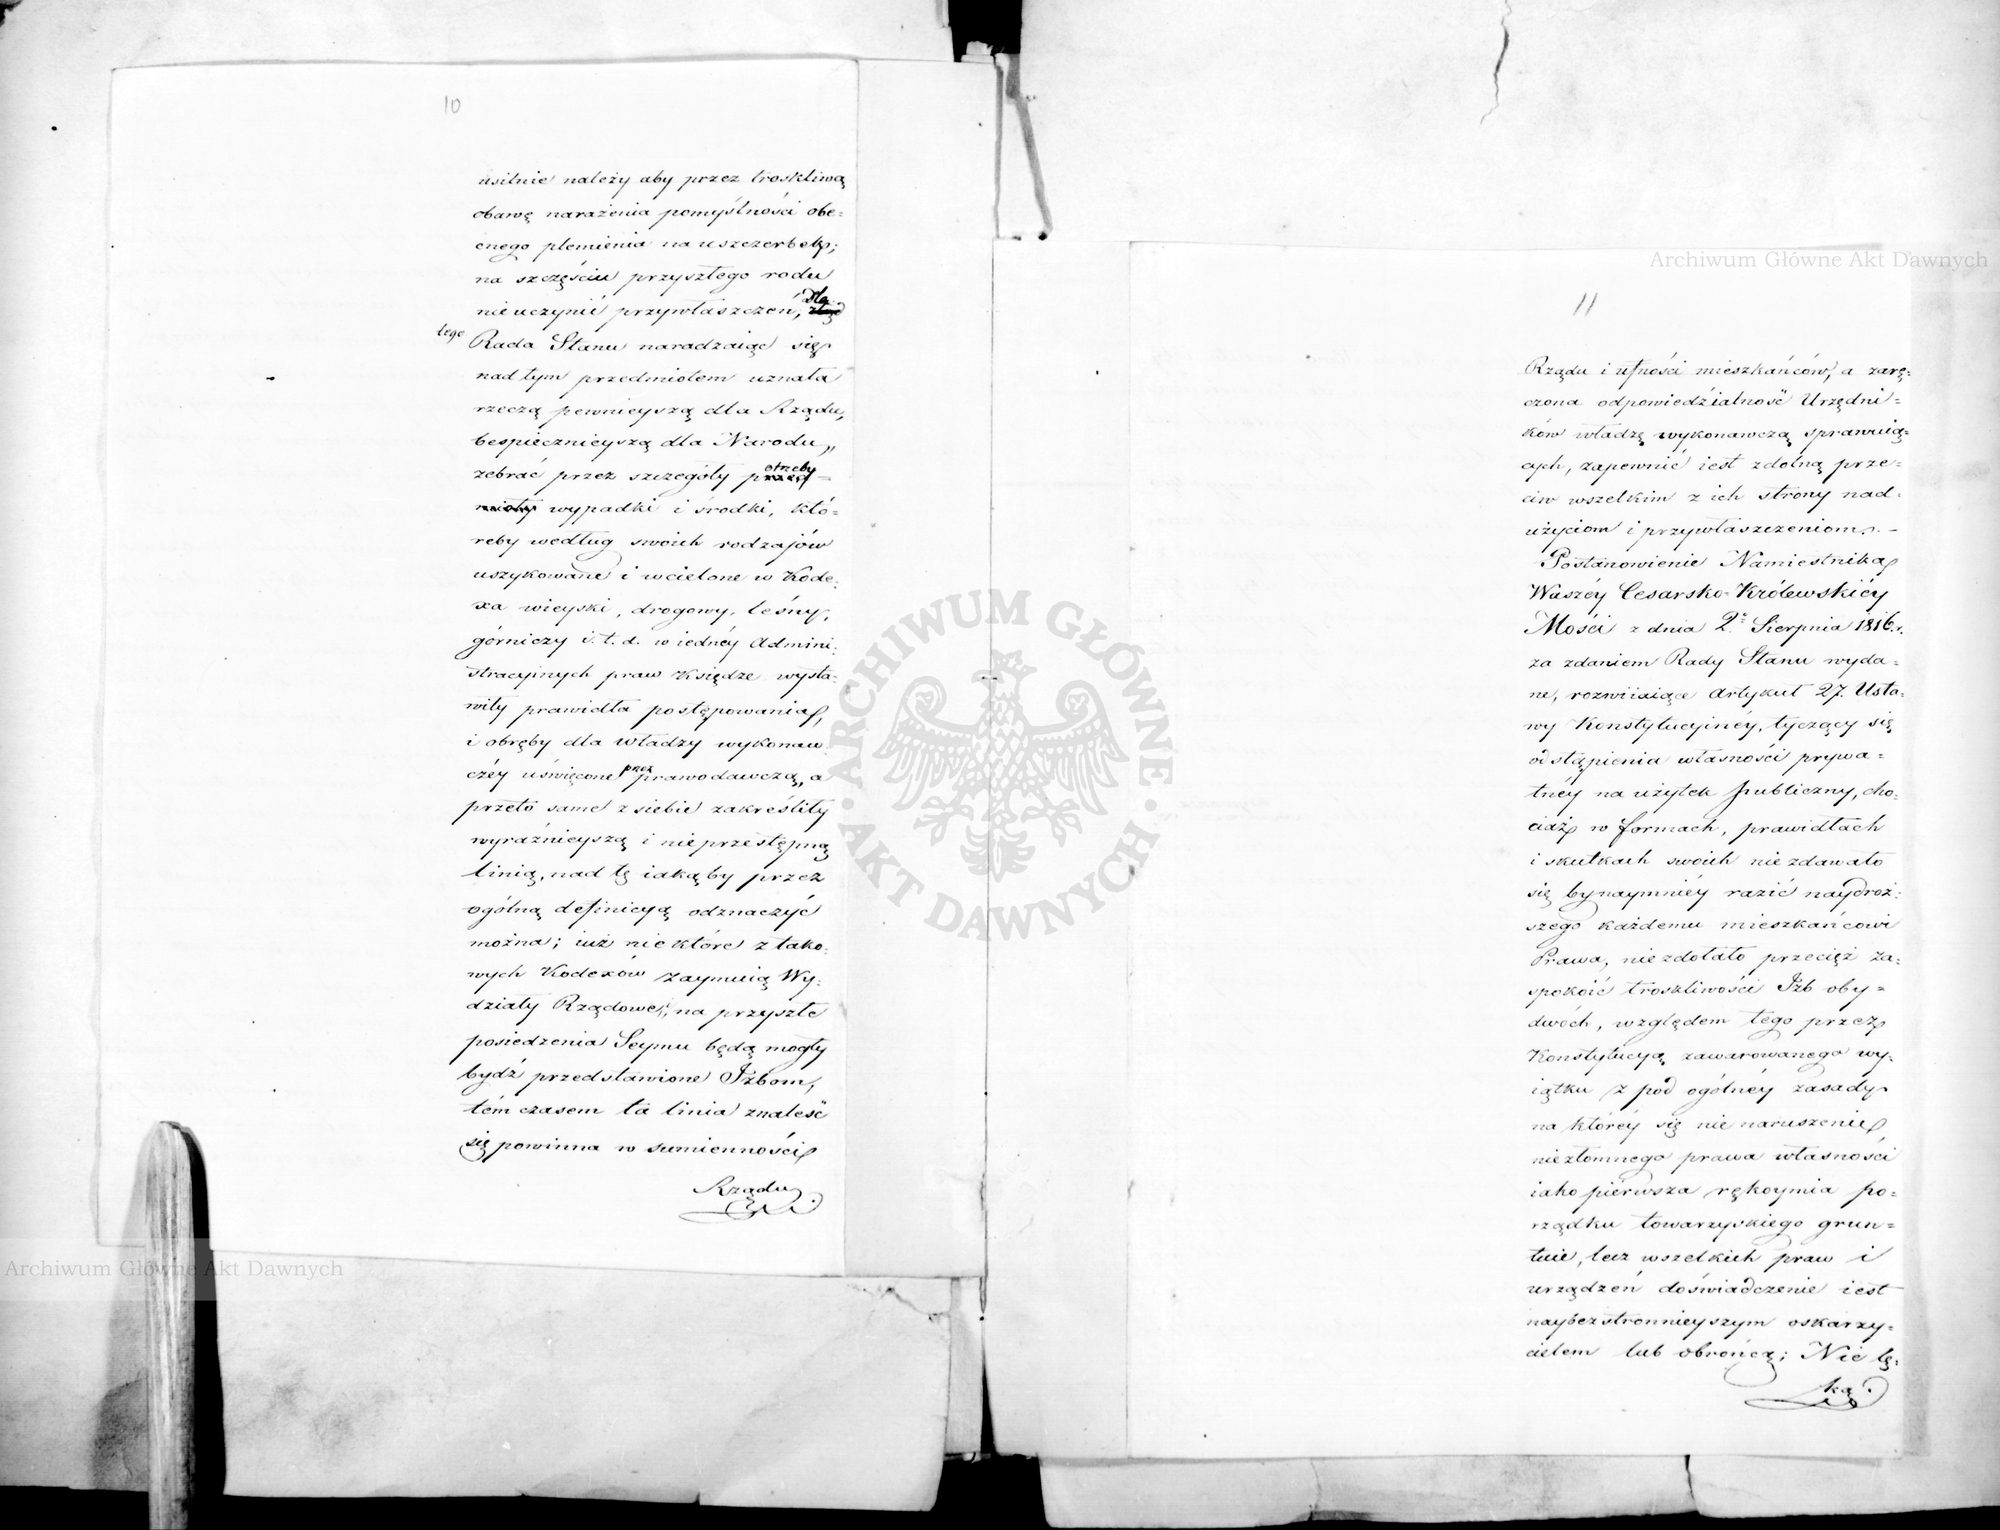 10
usilnie należy aby przez troskliwą
obawę narażenia pomyślności obe-
cnego plemienia na uszczerbek;
na szczęściu przyszłego rodu
nieuczynić przywłaszczeń, Dla
tego Rada Stanu naradzaiąc się
nad tym przedmiotem uznała
rzeczą pewnieyszą dla Rządu,
bespiecznieyszą dla Narodu,
zebrać przez szczegóły potrzeby
wypadki i środki, któ-
reby według swoich rodzajów
uszykowane i wcielone w Kode-
xa wieyski, drogowy, leśny,
górniczy i. t. d. w iednéy Admini-
stracyjnych praw Księdze wysta-
wiły prawidła postępowania,
i obręby dla władzy wykonaw-
czéy uświęcone przez prawodawczą, a
przeto same z siebie zakreśliły
wyraźnieyszą i nieprzestępną
linią, nad tę iakąby przez
ogólną definicyą odznaczyć
można; iuż niektóre z tako-
wych Kodexów zaymuią Wy-
działy Rządowe, na przyszłe
posiedzenia Seymu będą mogły
bydź przedstawione Izbom,
tém czasem ta linia znaleść
się powinna w sumienności
Rządu
11
Rządu i ufności mieszkańców, a zarę-
czona odpowiedzialność Urzędni-
ków władzę wykonawczą sprawuią-
cych, zapewnić iest zdolną prze-
ciw wszelkim z ich strony nad-
użyciom i przywłaszczeniom. -
Postanowienie Namiestnika
Waszéy Cesarsko-Królewskiéy
Mości z dnia 2º Sierpnia 1816. r.
za zdaniem Rady Stanu wyda-
ne, rozwiiaiące Artykuł 27. Usta-
wy Konstytucyinéy, tyczący się
odstąpienia własności prywa-
tnéy na użytek publiczny, cho-
ciaż w formach, prawidłach
i skutkach swoich niezdawało
się bynaymniéy razić naydroż-
szego każdemu mieszkańcowi
Prawa, niezdołało przecięż za-
spokoić troskliwości Izb oby-
dwóch, względem tego przez
Konstytucyą zawarowanego wy-
iątku z pod ogólnéy zasady
na któréy się nienaruszenie
niezłomnego prawa własności
iako pierwsza rękoymia po-
rządku towarzyskiego grun-
tuie, lecz wszelkich praw i
urządzeń doświadczenie iest
naybezstronnieyszym oskarży-
cielem lub obrońcą; Nie lę-
ka
Archiwum Główne Akt Dawnych
Archiwum Główne Akt Dawnych
ARCHIWUM GŁÓWNE
AKT DAWNYCH